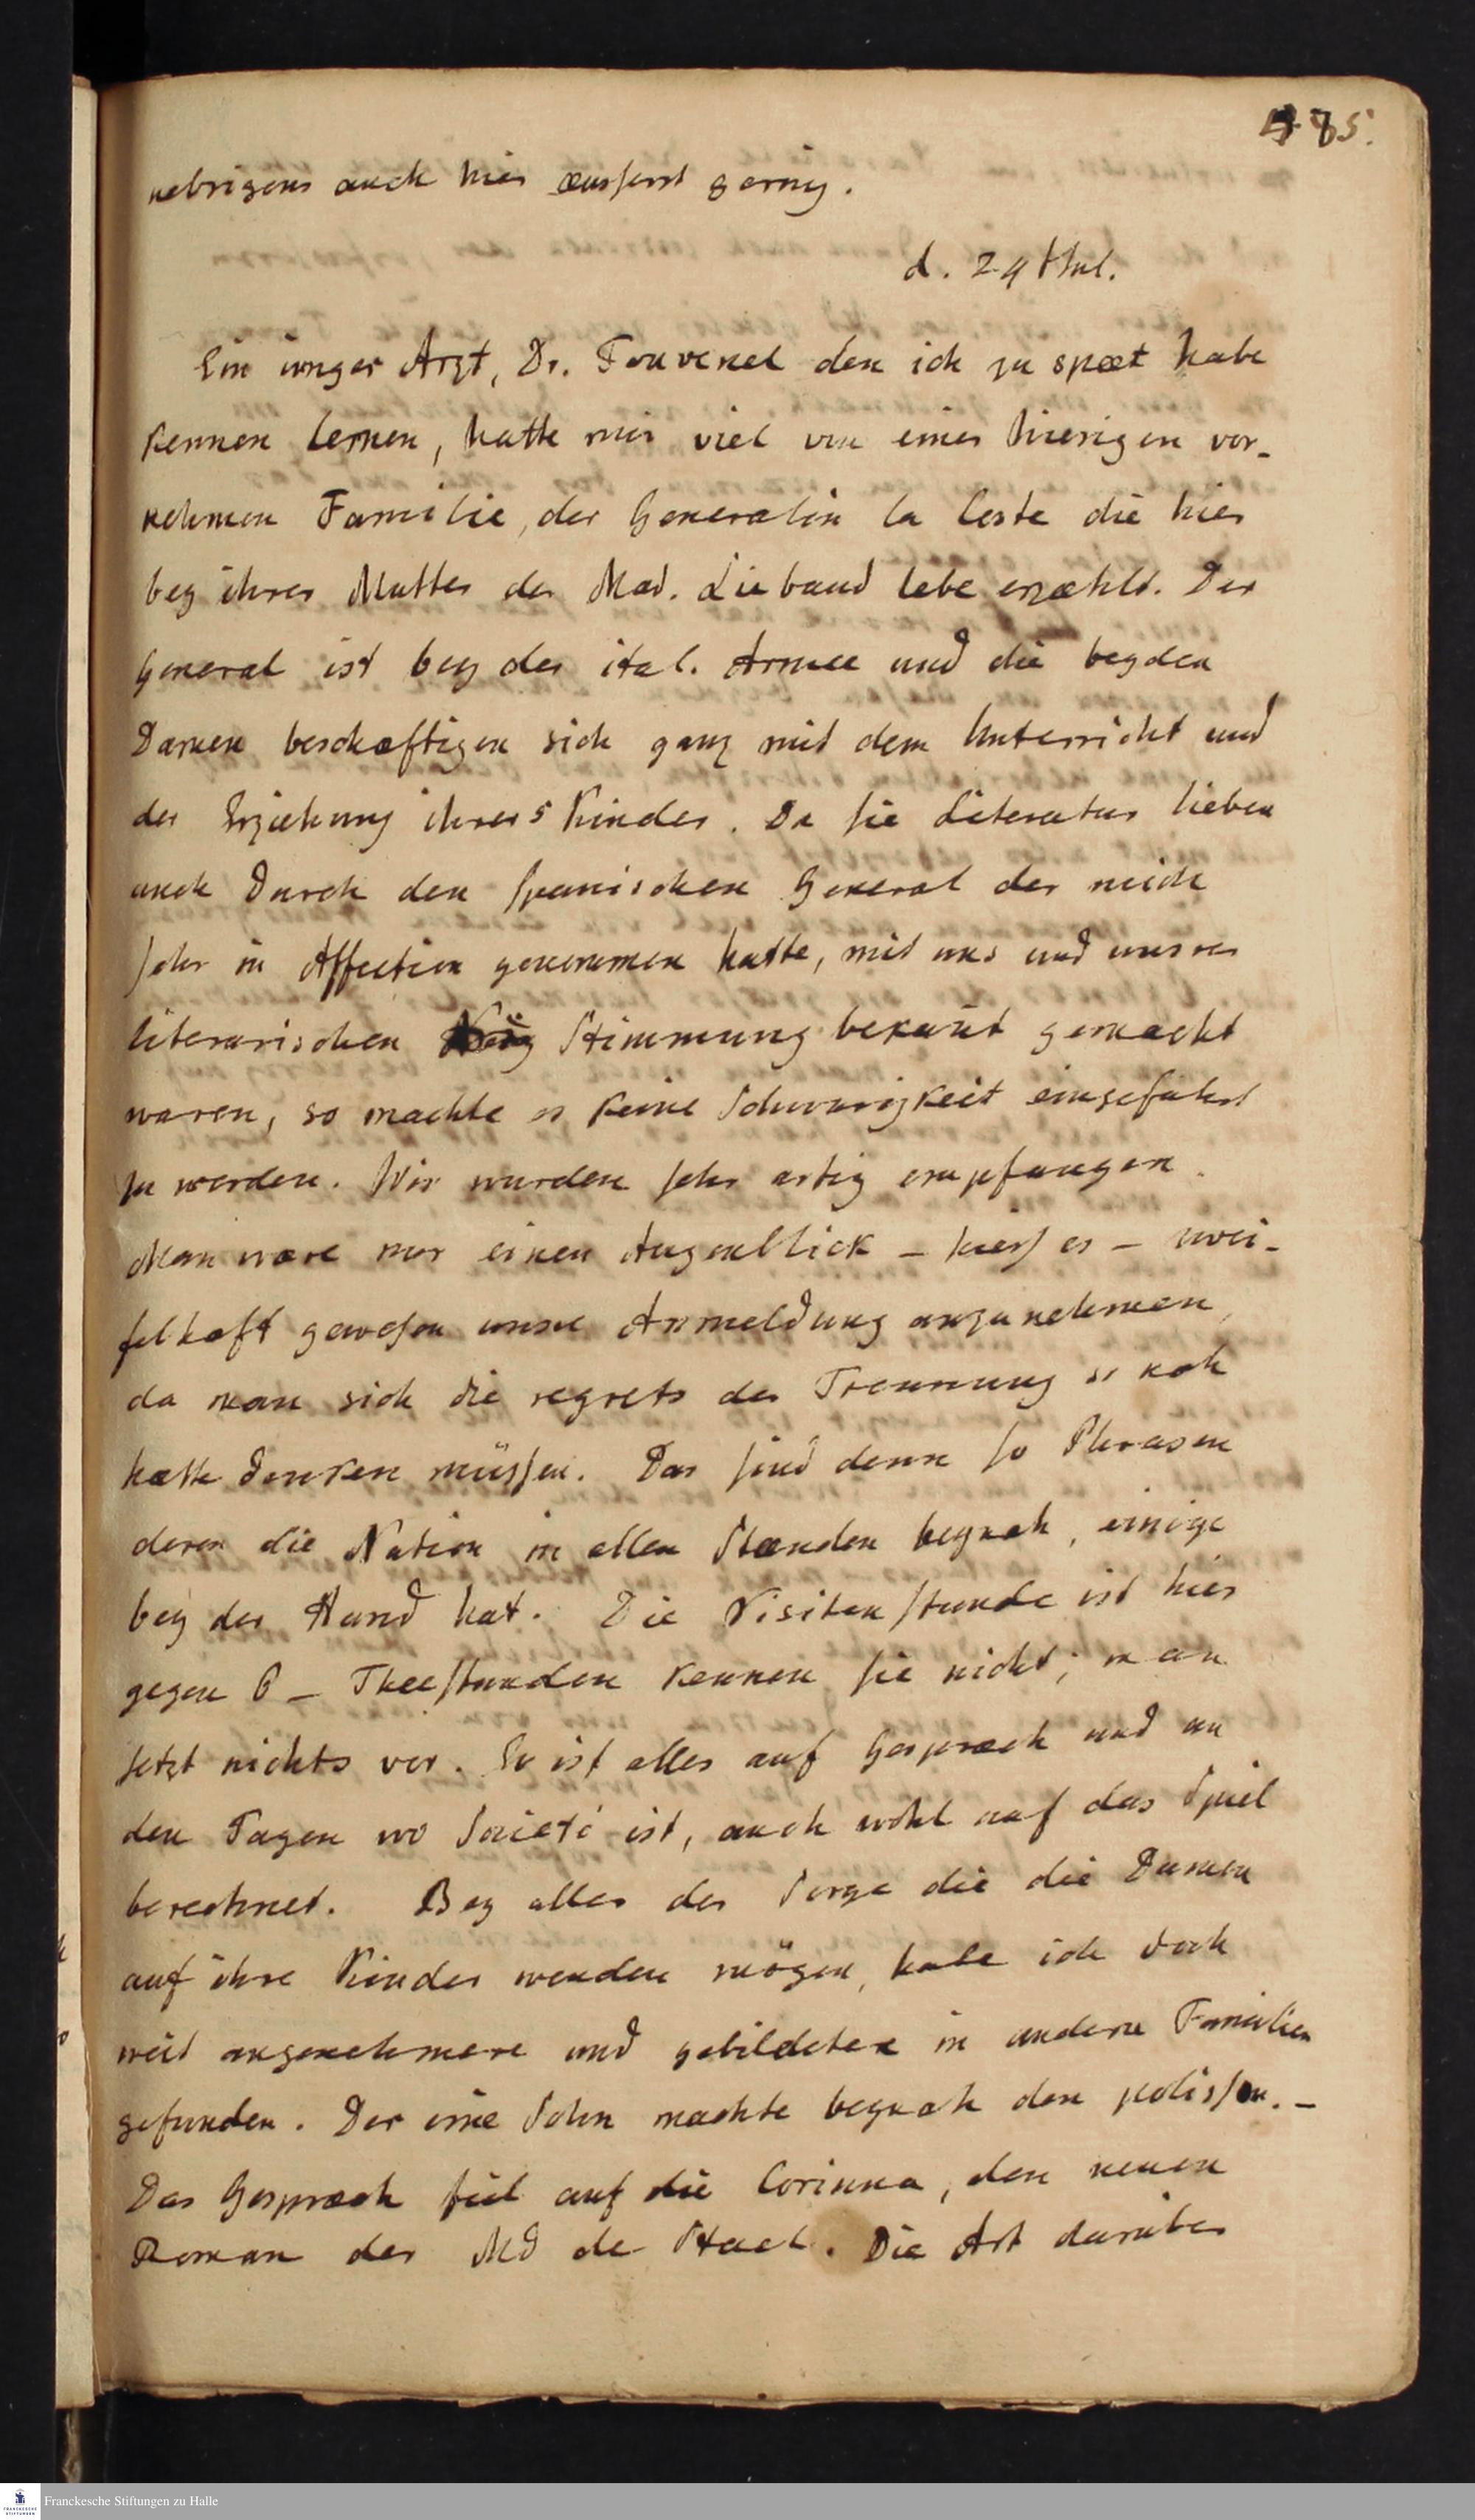 485.
uebrigens auch hier æusserst gering.
d. 29t Jul.
Ein iunger Arzt, Dr. Touvenel den ich zu spæt habe
kennen lernen, hatte mir viel von einer hierigen vor-
nehmen Familie, der Generalin la Coste die hier
bey ihrer Mutter der Mad. Liebaud lebe erzæhlt. Der
General ist bey der ital. Armee und die beyden
Damen beschæftigen sich ganz mit dem Unterricht und
der Erziehung ihrer 5 Kinder. Da sie Literatur lieben
auch durch den spanischen General der mich
sehr in Affection genommen hatte, mit uns und unsrer
literarischen Stimmung bekañt gemacht
waren, so machte es keine Schwurigkeit eingeführt
zu werden. Wir wurden sehr artig empfangen.
Man wære nur einen Augenblick – hiess es – zwei-
felhaft gewesen unsre Anmeldung anzunehmen,
da man sich die regrets der Trennung so nah
hætte denken müssen. Das sind denn so Phrasen
deren die Nation in allen Stænden beynah, einige
bey der Hand hat. Die Visitenstunde ist hier
gegen 6 – Theestunden kennen sie nicht; man
setzt nichts vor. Es ist alles auf Gespræch und an
den Tagen wo Societé ist, auch wohl auf das Spiel
berechnet. Bey aller der Sorge die die Damen
auf ihre Kinder wenden mögen, habe ich doch
weit angenehmere und gebildetere in andern Familien
gefunden. Der eine Sohn machte beynah den polisson. –
Das Gespræch fiel auf die Corinna, den neuen
Roman der Md de Stael. Die Art darüber
Franckesche Stiftungen zu Halle